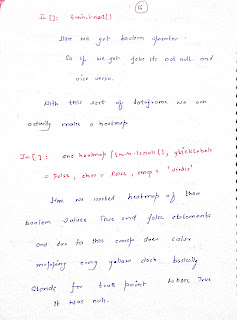 16
In []: train.isnull()
Here we got boolean operator.
So if we get false its not null. and
vice versa.
With this sort of dataframe we can
actually make a heatmap
In []: sns.heatmap (train.isnull(), yticklabels
= False, cbar = False, cmap = 'viridis'
Here we created heatmap of these
boolean values True and false statements
and due to this cmap does color
mapping every yellow dash basically
stands for true point where True
it was null.